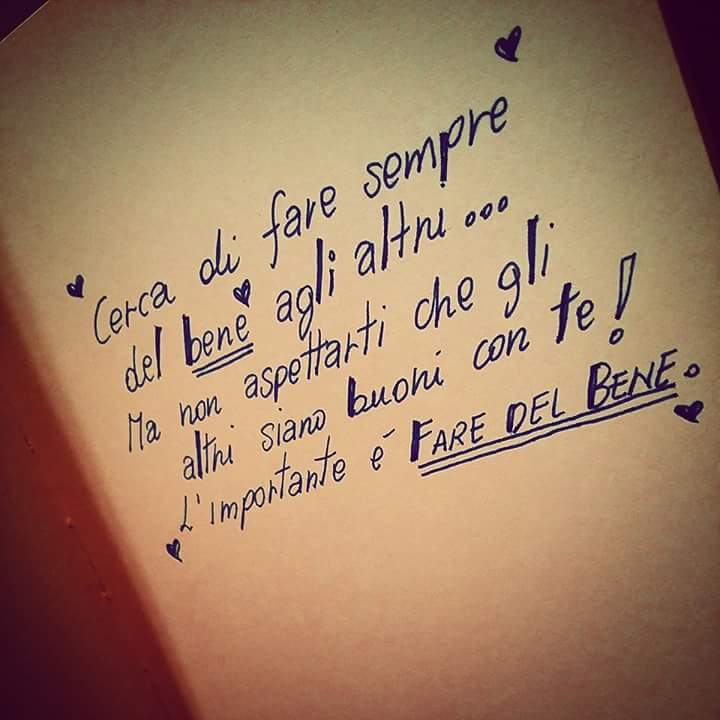 Cerca di fare sempre
del bene agli altri...
Ma non aspettarti che gli
altri siano buoni con te!
L'importante é FARE DEL BENE.